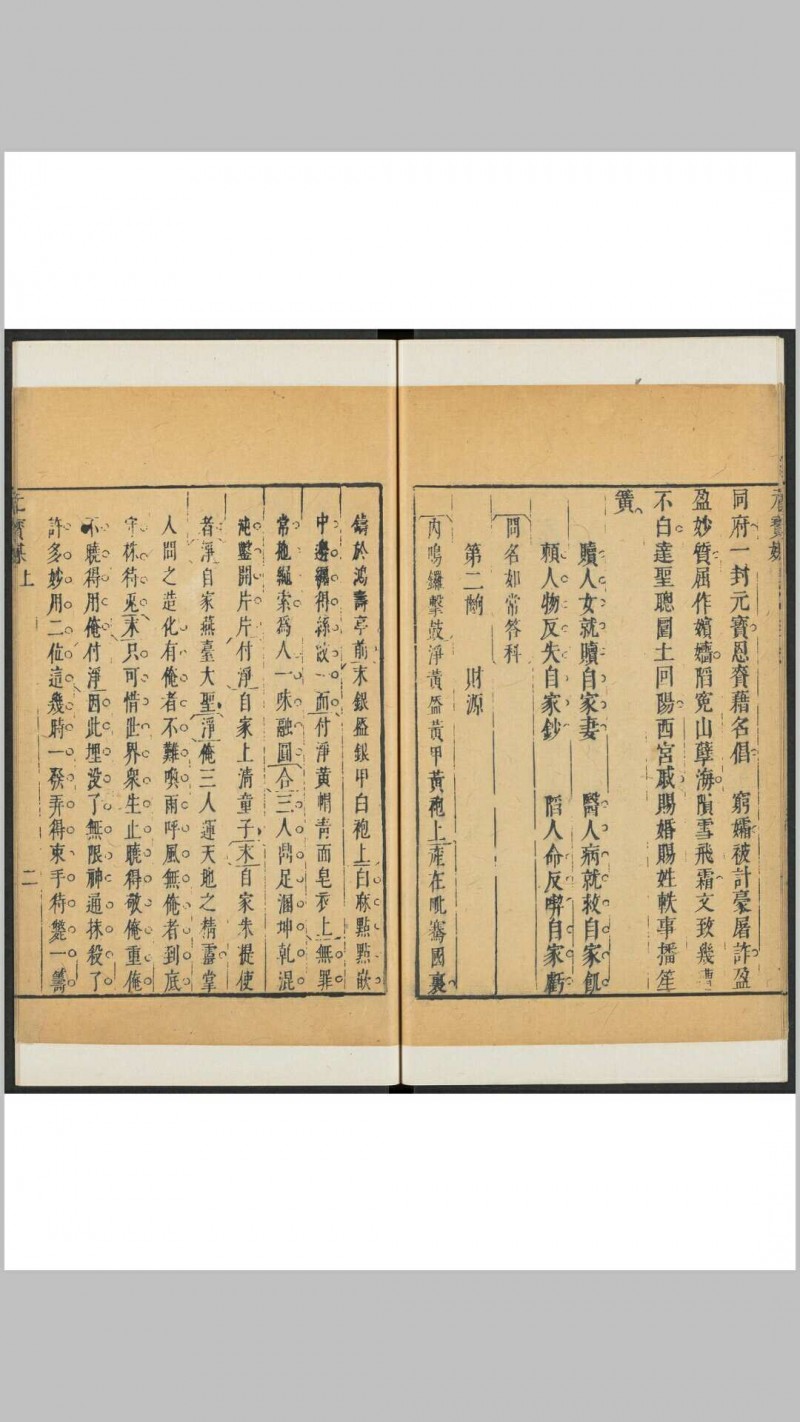 元寶媒
同府一封元寶恩賚藉名倡　窮孀被計豪屠詐盈
盈妙質屈作嬪嬙蹈寃山孽海隕雪飛霜文致幾遭
不白達聖聰圜土回陽西宮戚賜婚賜姓軼事播笙
簧
贖人女就贖自家妻　醫人病就救自家飢
賴人物反失自家鈔　蹈人命反喫自家虧
問名如常答科
第二齣　財源
內鳴鑼擊鼓淨黃盔黃甲黃袍上產在毗騫國裏
鑄於鴻壽亭前末銀盔銀甲白袍上白麻點點嵌
中邊羅得絲紋一面付淨黃帽靑面皂衣上無罪
常拖繩索爲人一味融圓合三人鬥足涸坤乾混
沌鑿開片片付淨自家上淸童子末自家朱提使
者淨自家燕臺大聖淨俺三人蘊天地之精靈掌
人間之造化有俺者不難喚雨呼風無俺者到底
守株待兎末只可惜世界衆生止曉得敬俺重俺
不曉得用俺付淨因此埋没了無限神通抹殺了
許多妙用二位這幾時一發弄得束手待斃一籌
元寶媒上
二